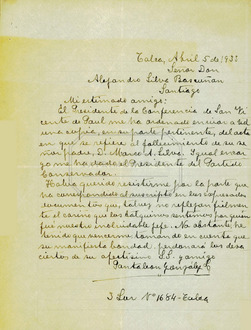 Talca, Abril 5 de 1933
Señor Don
Alejandro Silva Bascuñan
Santiago
Mi estimado amigo:
El Presidente de la Conferencia de San Vi
cente de Paul me ha ordenado enviar a Ud
una copia, en su parte pertinente, del acta
en que se refiere al fallecimiento de su se
ñor padre, D. Marco A. Silva. Igual encar
go me ha dado el Presidente del Partido
Conservador.
Habia querido resistirme por la parte que
ha correspondido al suscrito en los espresados
documentos que, talvez no reflejan fielmen
te el cariño que los talquinos sentimos por quien
fué nuestro inolvidable jefe. No obstante, he
tenido que vencerme tomando en cuenta que
su manifiesta bondad, perdonará los desa
ciertos de su afectísimo S.S. y amigo
Pantaleon Gonzalez C
3 Sur Nº 1684 - Talca